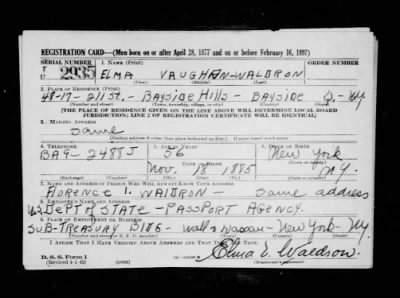 REGISTRATION CARD—(Men born on or after April 28, 1877 and on or before February 16, 1897)
SERIAL NUMBER 1. NAME (Print) ORDER NUMBER
U 2935 ELMA VAUGHAN-WALDRON
(First) (Middle) (Last)
2. PLACE OF RESIDENCE (Print)
48-17-211 St.- BAYSIDE HILLS- BAYSIDE Q.- NY
(Number and street) (Town, township, village, or city) (County) (State)
[THE PLACE OF RESIDENCE GIVEN ON THE LINE ABOVE WILL DETERMINE LOCAL BOARD
JURISDICTION; LINE 2 OF REGISTRATION CERTIFICATE WILL BE IDENTICAL]
3. MAILING ADDRESS
Same
4. TELEPHONE 5. AGE IN YEARS 6. PLACE OF BIRTH
BA9-2488J 56 New York
Nov. 18 1885 N.Y.
7. NAME AND ADDRESS OF PERSON WHO WILL ALWAYS KNOW YOUR ADDRESS
FLORENCE I. WALDRON- Same address
8. EMPLOYER'S NAME AND ADDRESS
U.S. DEPT OF STATE-PASSPORT AGENCY.
SUB-TREASURY BLDG- Wall & Nassau- New York- NY.
I AFFIRM THAT I HAVE VERIFIED ABOVE ANSWERS AND THAT THEY ARE TRUE.
D. S. S. Form 1
(Revised 4-1-42)
Elma V. Waldron.